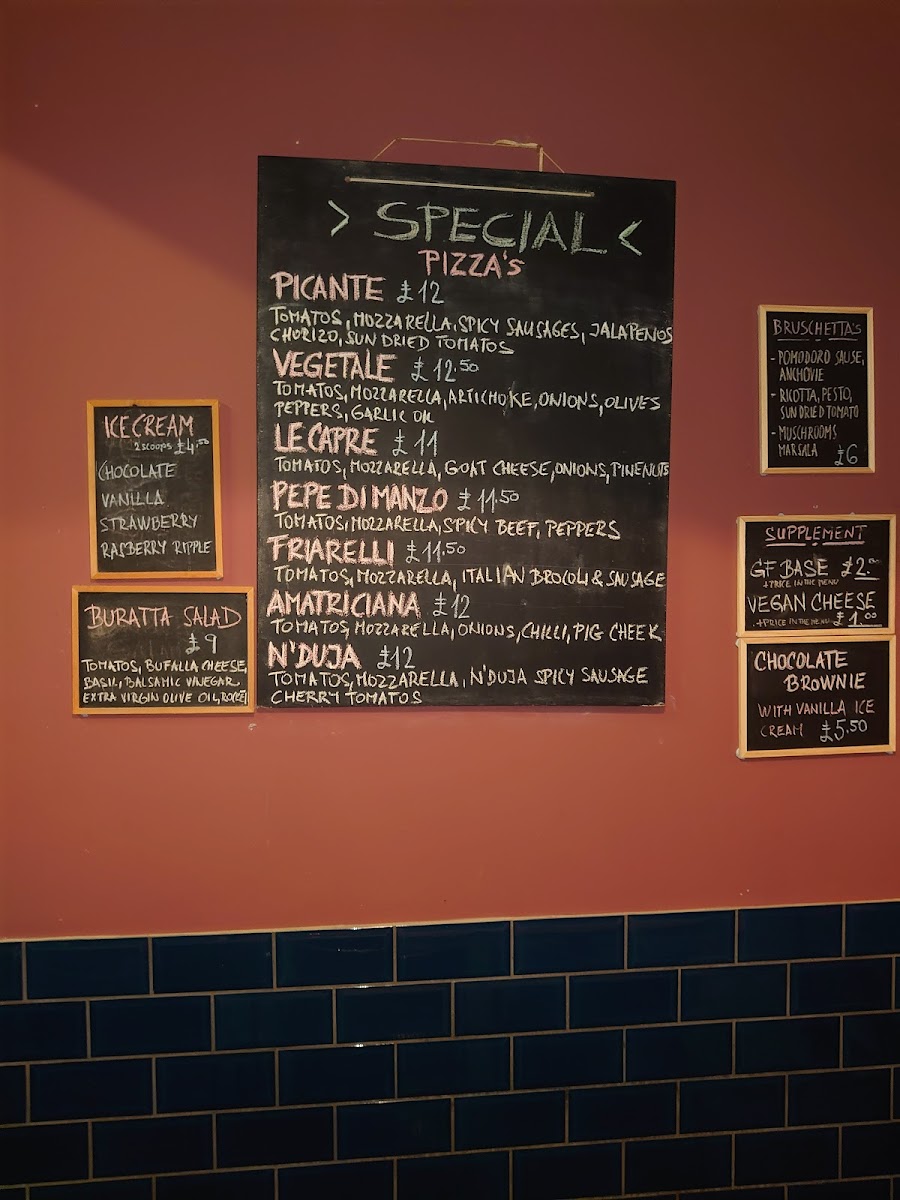 > SPECIAL <
PIZZA's
PICANTE £12
TOMATOS, MOZZARELLA, SPICY SAUSAGES, JALAPENOS
CHORIZO, SUN DRIED TOMATOS
VEGETALE £12.50
TOMATOS, MOZZARELLA, ARTICHOKE, ONIONS, OLIVES
PEPERS, GARLIC OIL
LE CAPRE £11
TOMATOS, MOZZARELLA, GOAT CHEESE, ONIONS, PINENUTS
PEPE DI MANZO £11.50
TOMATOS, MOZZARELLA, SPICY BEEF, PEPPERS
FRIARELLI £11.50
TOMATOS, MOZZARELLA, ITALIAN BROCOLI & SAUSAGE
AMATRICIANA £12
TOMATOS, MOZZARELLA, ONIONS, CHILLI, PIG CHEEK
N'DUJA £12
TOMATOS, MOZZARELLA, N'DUJA SPICY SAUSAGE
CHERRY TOMATOS
ICE CREAM
2 SCOOPS £4.50
CHOCOLATE
VANILLA
STRAWBERRY
RASBERRY RIPPLE
BURATTA SALAD
£9
TOMATOS, BUFALLA CHEESE,
BASIL, BALSAMIC VINEGAR
EXTRA VIRGIN OLIVE OIL,
BRUSCHETTA'S
- POMODORO SAUSE,
ANCHOVIE
- RICOTTA, PESTO,
SUN DRIED TOMATO
- MUSCHROOMS
MARSALA £6
SUPPLEMENT
GF BASE £2.00
+ PRICE IN THE MENU
VEGAN CHEESE
+ PRICE IN THE MENU £1.00
CHOCOLATE
BROWNIE
WITH VANILLA ICE
CREAM £5.50